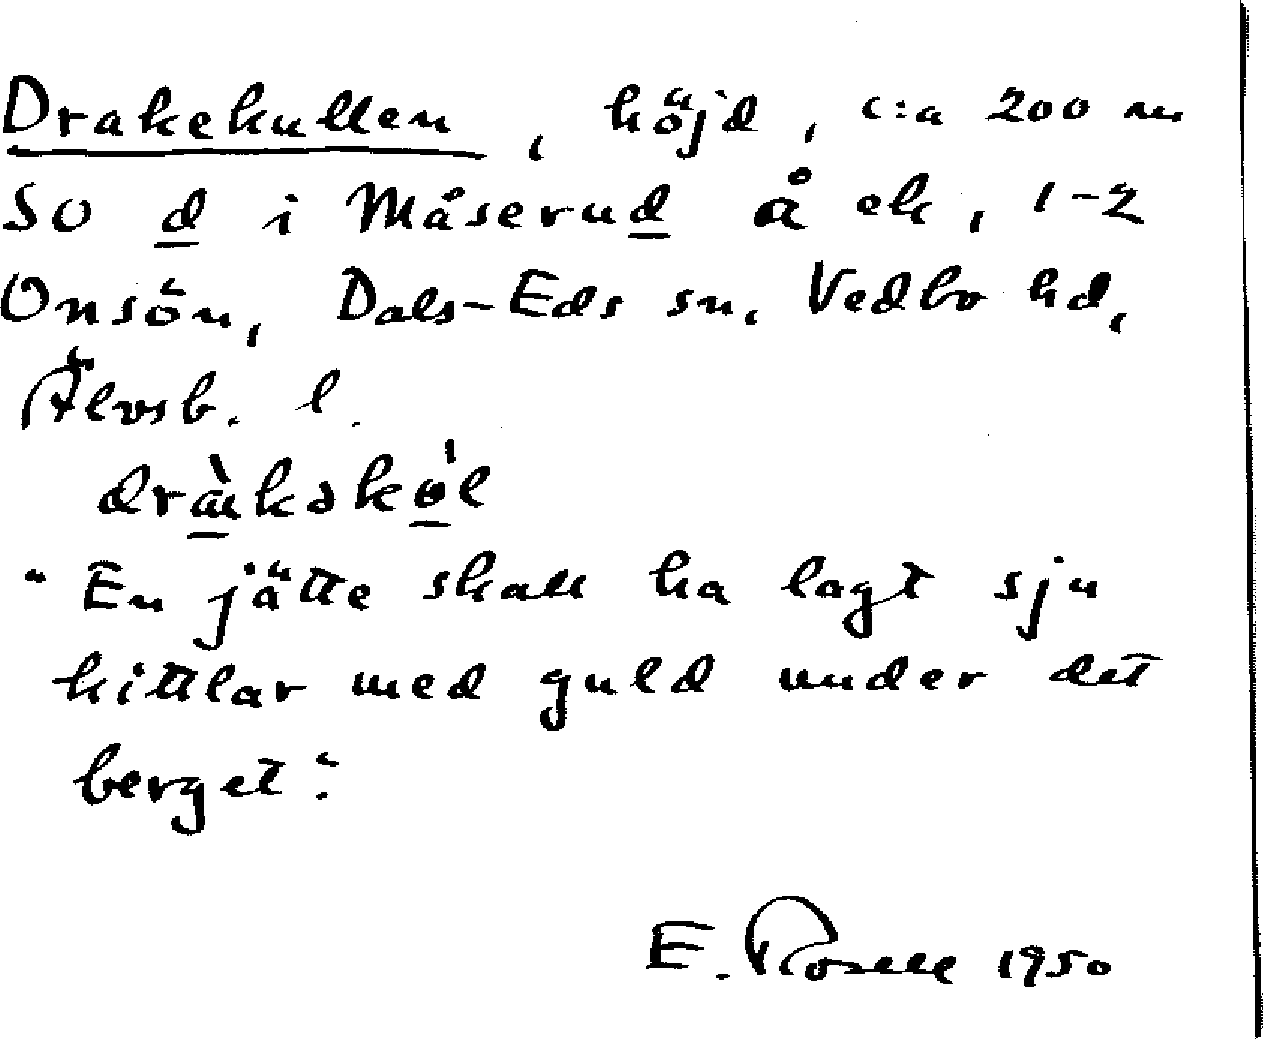 Drakekullen, höjd, c:a 200 m
SO d i Måserud å ek, 1-2
Onsön, Dals-Eds sn, Vedbo hd,
Älvsb. l.
"En jätte skall ha lagt sju
kittlar med guld under det
berget."
E. Rosell 1950